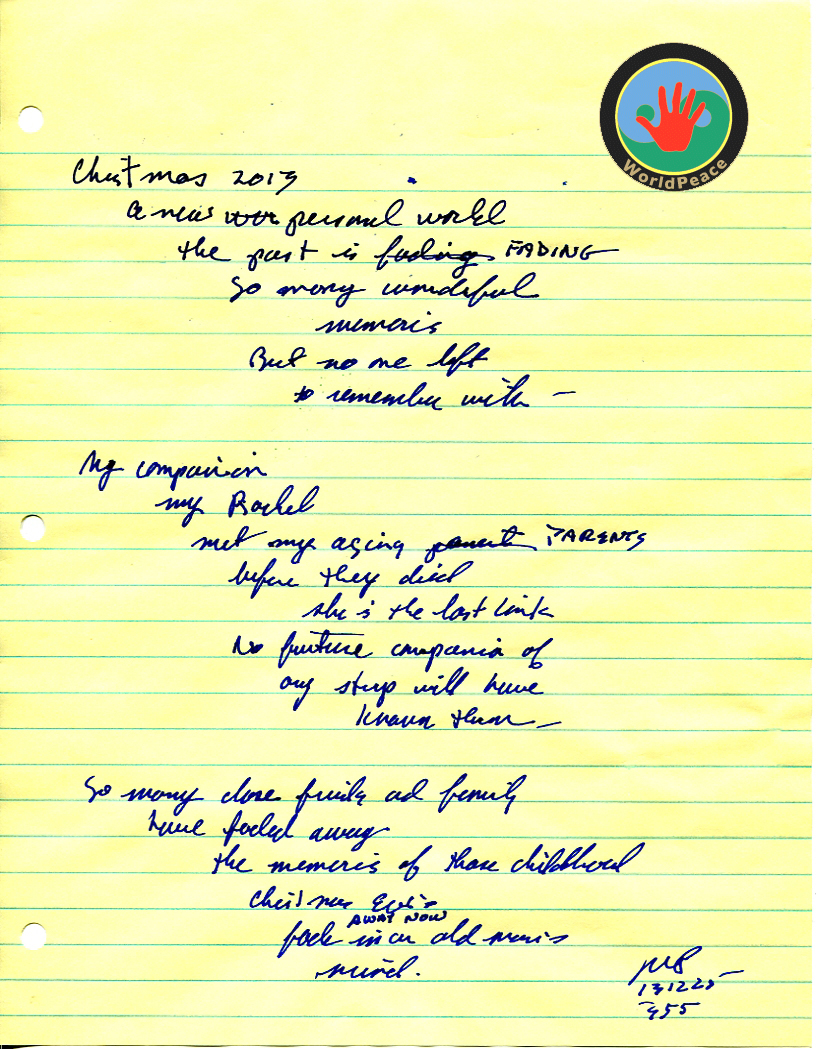 WorldPeace
Christmas 2019
a new personal world
the past is fading FADING
So many wonderful
memoris
But no one left
to remember with —
My companion
my Rachel
met my aging parents PARENTS
before they died
she is the last link
No future companion of
any will have
known them —
So many close and family
have faded away
the memoris of those childhood
Christmas Eve's
AWAY NOW
fade in an old man's
mind.